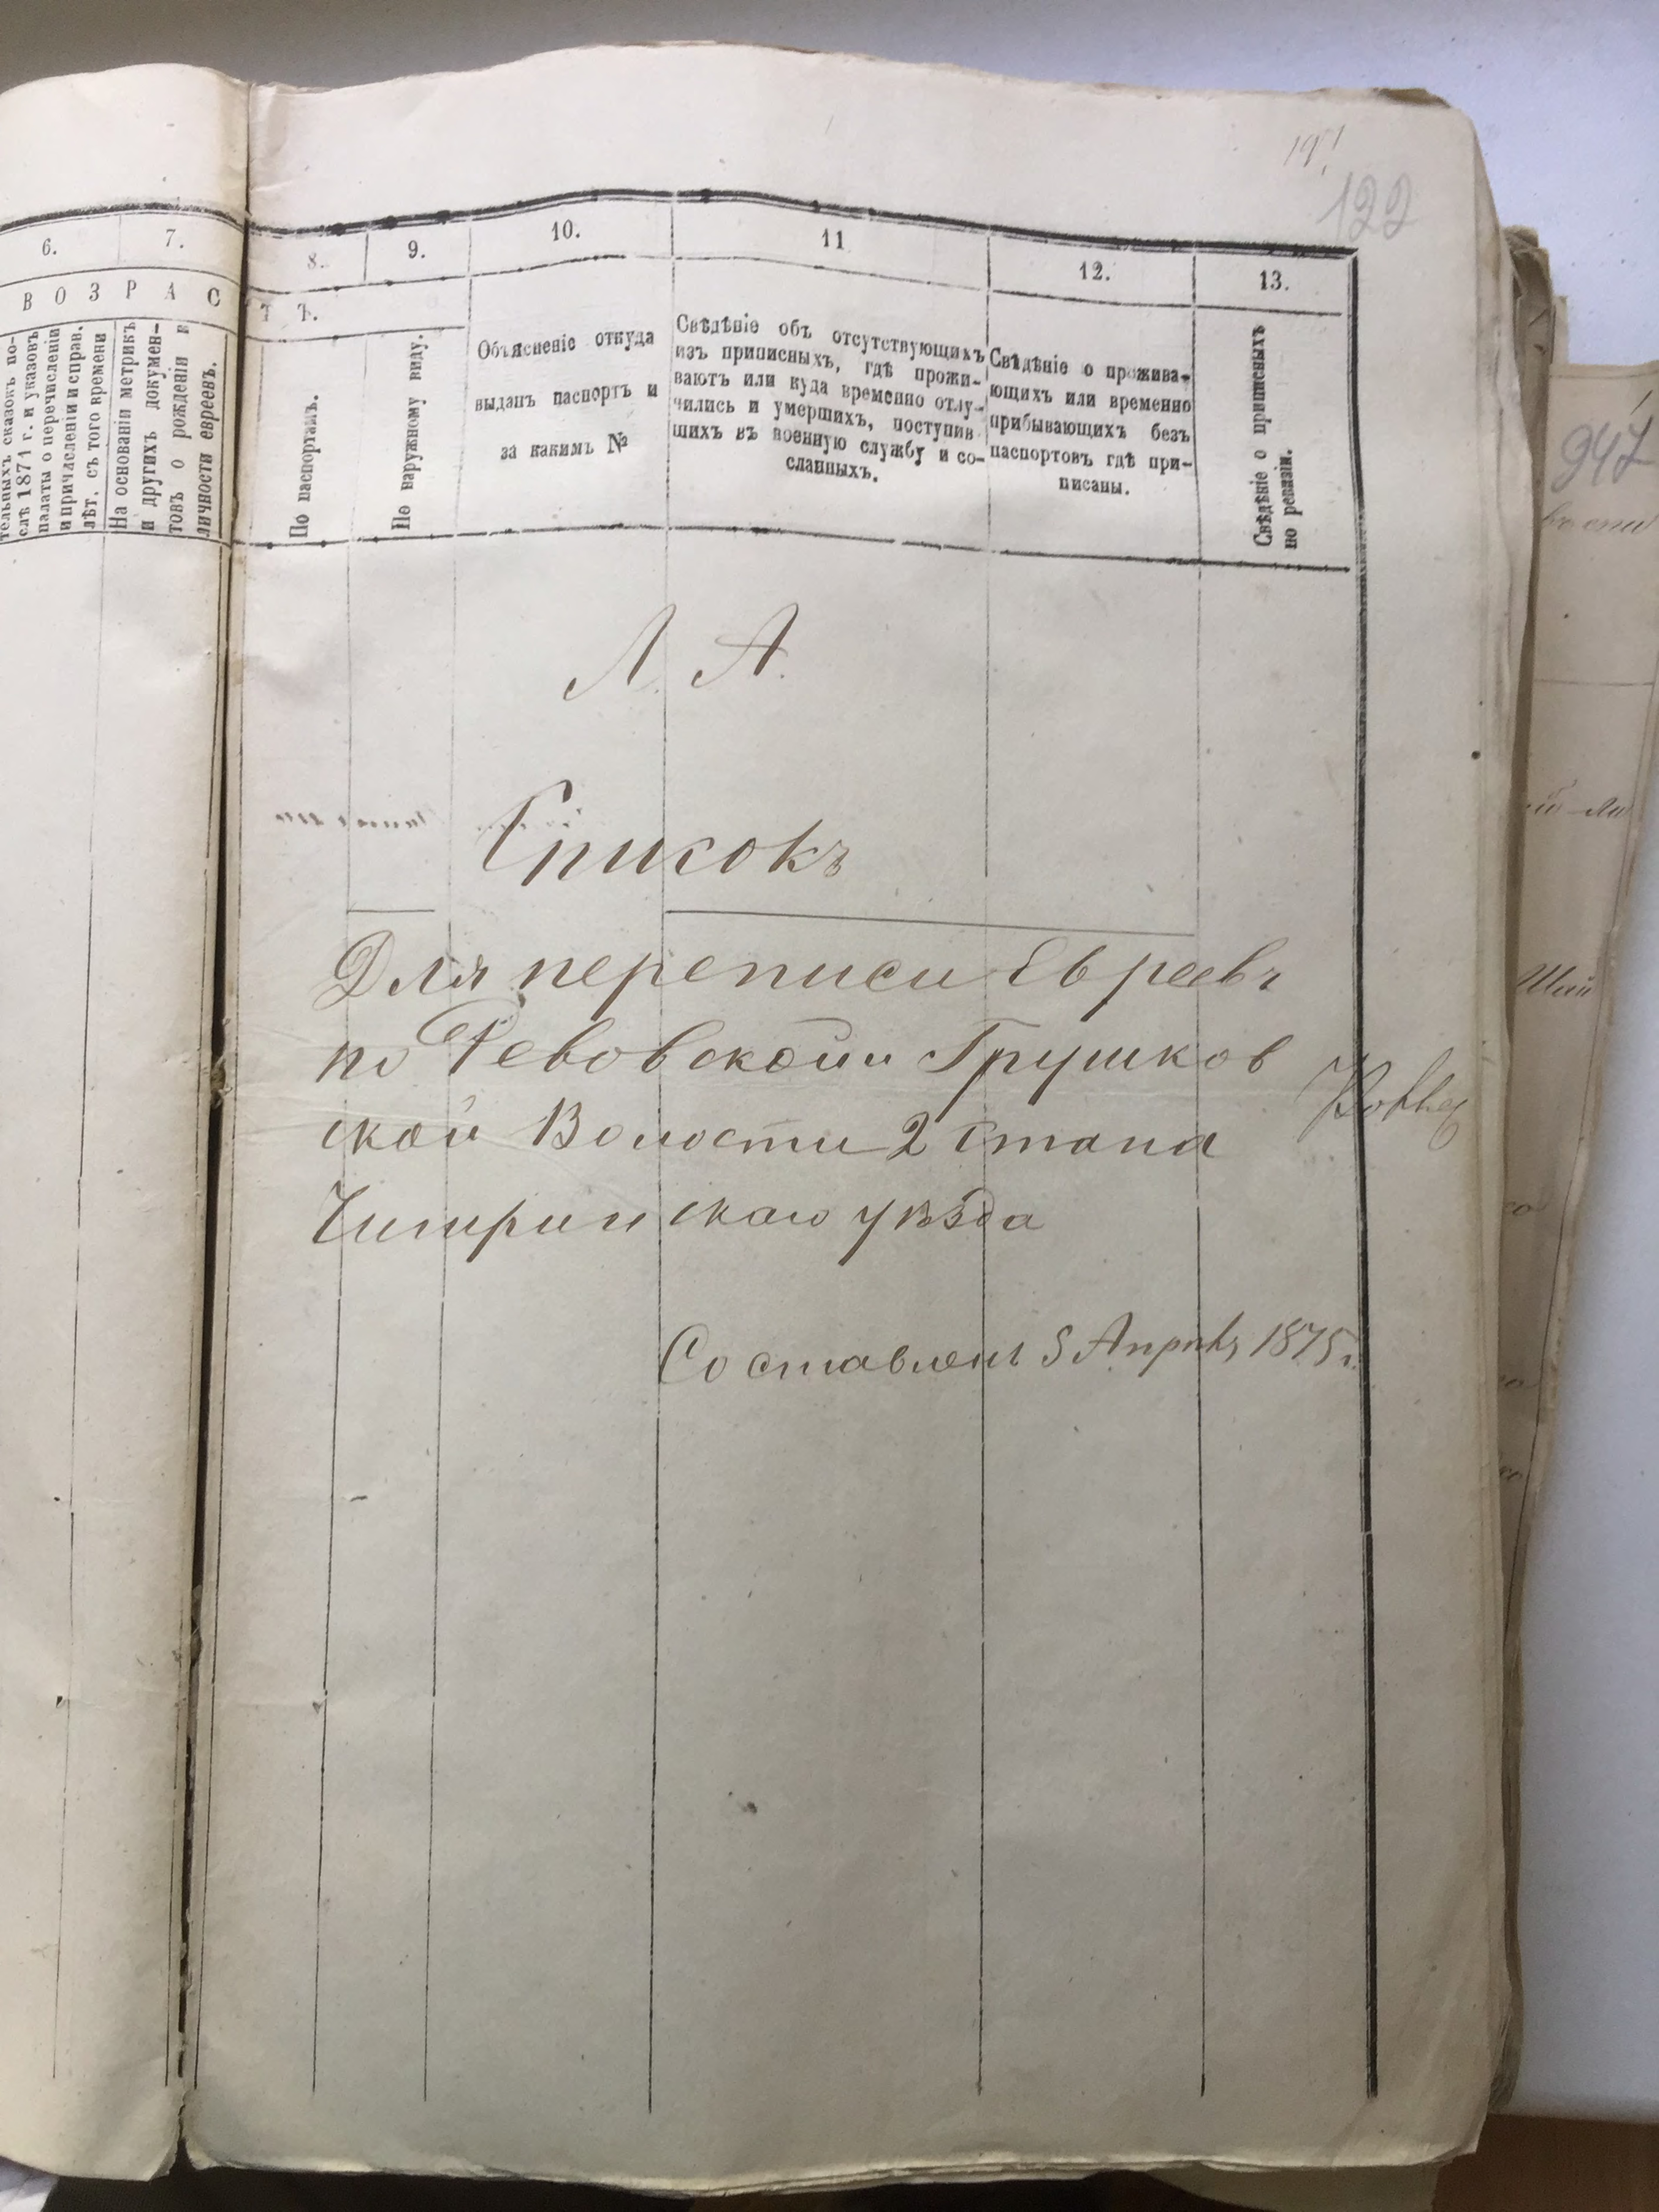 6.
7.
В О З Р А С
тельныхъ сказокъ по-
слѣ 1871 г. и указовъ
палаты о перечисленіи
и причисленіи и справ.
лѣт. съ того времени
На основаніи метрикъ
и другихъ докумен-
товъ о рожденіи и
личности евреевъ.
122
8.
9.
10.
11
12.
13.
Т Ъ.
По паспортамъ.
По наружному виду.
Объясненіе откуда
выданъ паспортъ и
за какимъ №
Свѣдѣніе объ отсутствующихъ
изъ приписныхъ, гдѣ прожи-
ваютъ или куда временно отлу-
чились и умершихъ, поступив
шихъ въ военную службу и со-
сланныхъ.
Свѣдѣніе о прожива-
ющихъ или временно
прибывающихъ безъ
паспортовъ гдѣ при-
писаны.
Свѣдѣніе о приписныхъ
по ревизіи.
Л. А.
Списокъ
Для переписи Евреевъ
по Ревовской и Грушков
ской Волости 2 стана
Чигиринскаго уѣзда
Составленъ 5 Апрѣля 1875 г.
947